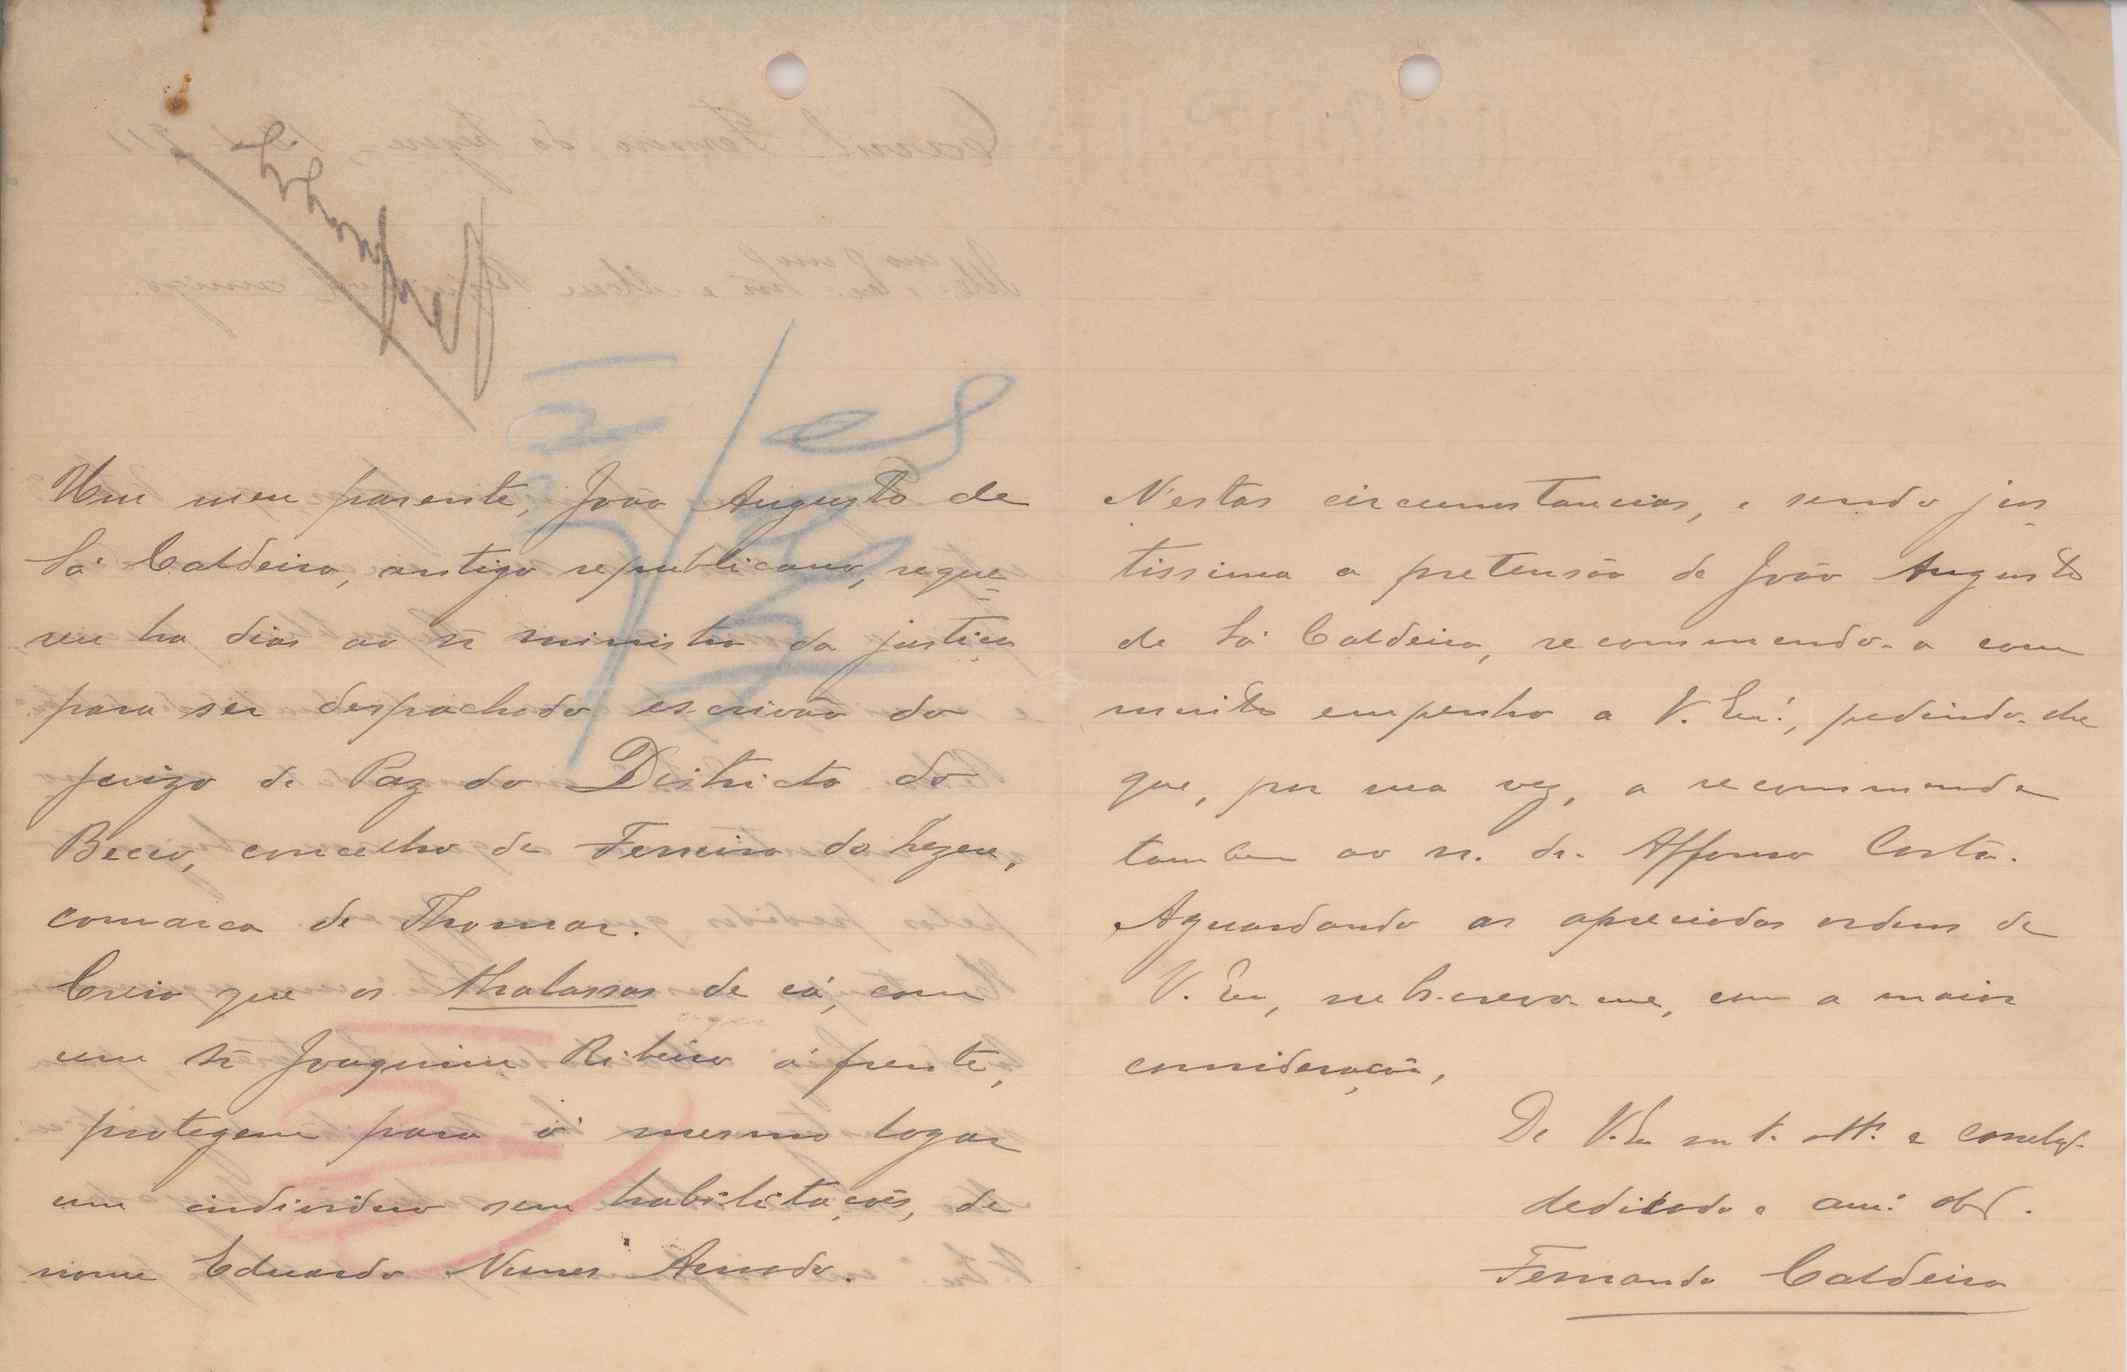 Um meu parente, João Augusto de
Sá Caldeira, antigo republicano, reque=
reu ha dias ao sr ministro da justiça
para ser despachado escrivão do
juizo de Paz do Districto do
Becco, concelho de Ferreira do Zezere,
comarca de Thomar.
Creio que os thalassas de cá, com
um sr Joaquim Ribeiro á frente,
protegem para o mesmo logar
um individuo sem habilitações, de
nome Eduardo Nunes Amado.
N'estas circumstancias, e sendo jus
tissima a pretensão de João Augusto
de Sá Caldeira, recommendo-a com
muito empenho a V. Exª, pedindo-lhe
que, por sua vez, a recommende
tambem ao sr. dr. Affonso Costa.
Aguardando as apreciadas ordens de
V. Ex, subscrevo-me, com a maior
consideração,
De V. Ex mt. attº e
dedicado e amº obr.
Fernando Caldeira